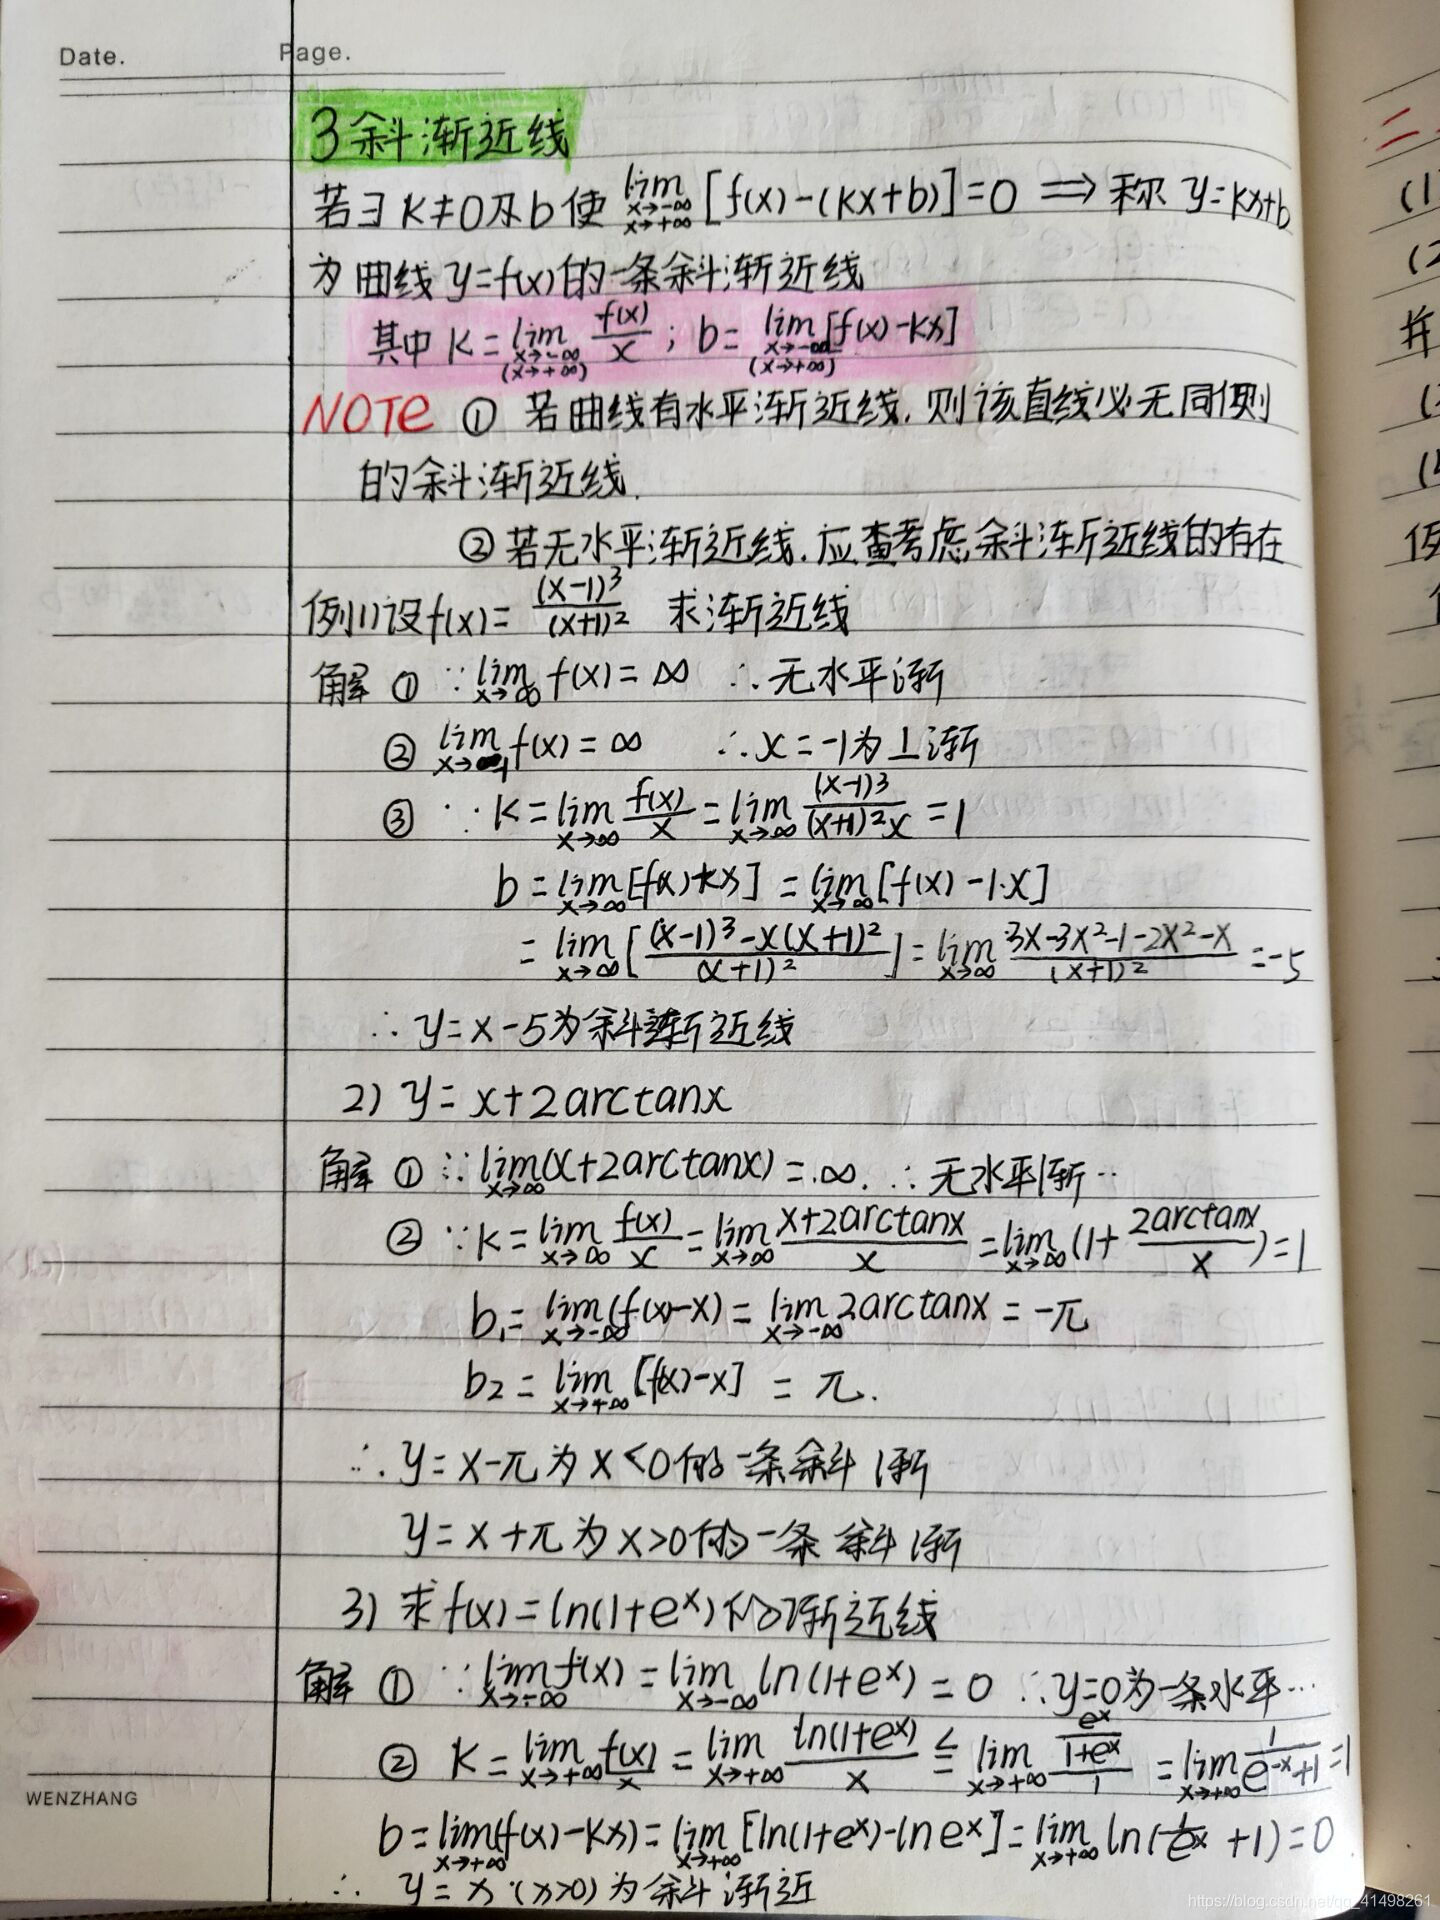 Date.
Page.
3 斜渐近线
若∃ k≠0及b使 lim x→-∞ x→+∞ [f(x)-(kx+b)]=0 ⟹ 称 y=kx+b
为曲线 y=f(x)的一条斜渐近线
其中 k= lim x→-∞ (x→+∞) f(x)/x ; b= lim x→-∞ (x→+∞) [f(x)-kx]
NOTe ① 若曲线有水平渐近线,则该直线必无同侧
的斜渐近线.
②若无水平渐近线,应查考虑斜渐近线的存在
例1)设f(x)= (x-1)³/(x+1)² 求渐近线
解 ① ∵ lim x→∞ f(x)=∞ ∴无水平渐
② lim x→-1 f(x)=∞ ∴x=-1为⊥渐
③ ∵ k= lim x→∞ f(x)/x = lim x→∞ (x-1)³/(x+1)²x =1
b= lim x→∞ [f(x)-kx] = lim x→∞ [f(x)-1·x]
= lim x→∞ [(x-1)³-x(x+1)²/(x+1)²] = lim x→∞ 3x-3x²-1-2x²-x/(x+1)² =-5
∴ y=x-5为斜渐近线
2) y=x+2arctanx
解 ① ∵ lim x→∞ (x+2arctanx)=∞. ∴无水平渐…
② ∵k= lim x→∞ f(x)/x = lim x→∞ x+2arctanx/x = lim x→∞ (1+ 2arctanx/x)=1
b₁= lim x→-∞ (f(x)-x)= lim x→-∞ 2arctanx = -π
b₂= lim x→+∞ [f(x)-x] = π.
∴ y=x-π为x<0的一条斜渐
y=x+π为x>0的一条斜渐
3) 求f(x)=ln(1+eˣ)的渐近线
解 ① ∵ lim x→-∞ f(x) = lim x→-∞ ln(1+eˣ)=0 ∴y=0为一条水平…
② k= lim x→+∞ f(x)/x = lim x→+∞ ln(1+eˣ)/x ≟ lim x→+∞ eˣ/1+eˣ/1 = lim x→+∞ 1/e⁻ˣ+1 =1
b= lim x→+∞ (f(x)-kx)= lim x→+∞ [ln(1+eˣ)-lneˣ]= lim x→+∞ ln(1/eˣ +1)=0
∴ y=x (x>0)为斜渐近
WENZHANG
https://blog.csdn.net/qq_41498261